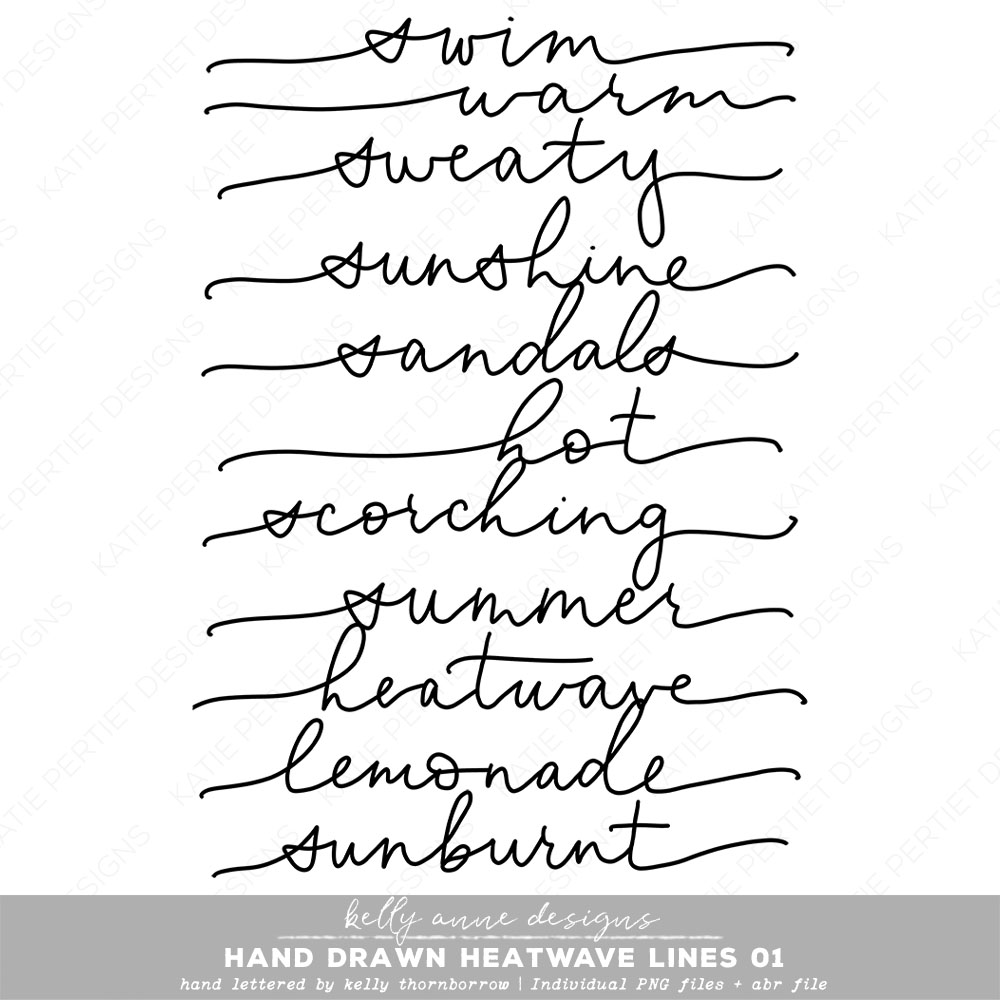 swim
warm
sweaty
sunshine
sandals
hot
scorching
summer
heatwave
lemonade
sunburnt
kelly anne designs
HAND DRAWN HEATWAVE LINES 01
hand lettered by kelly thornborrow | Individual PNG files + abr file
KATIE PERTIET DESIGNS